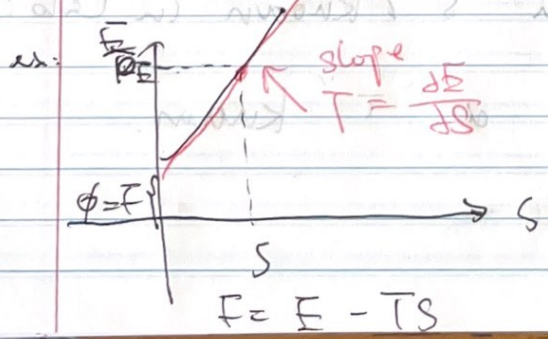 es:
E
E
slope
T = dE/dS
φ=F
S
S
F = E - TS